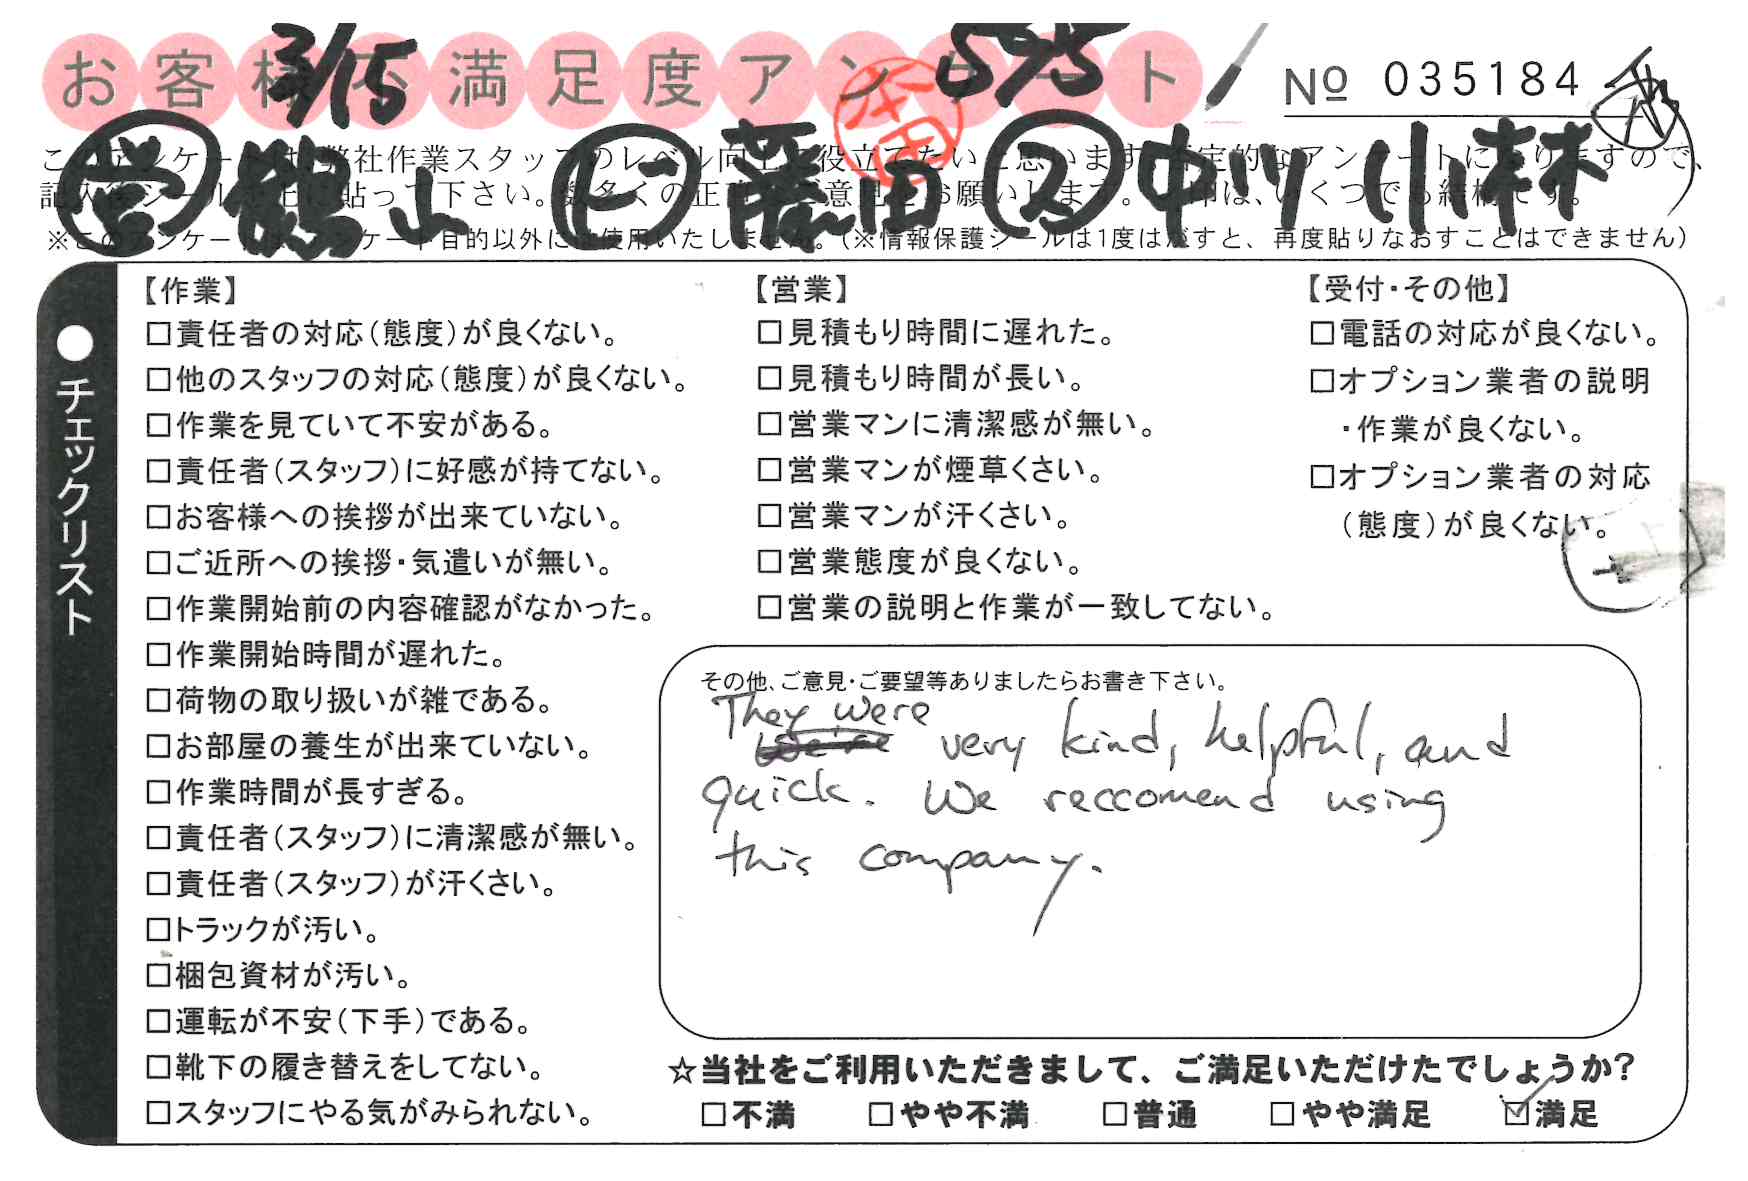 お客様の満足度アンケート
3/15
№ 035184
本田
営 鶴山 ドー 藤田 ス 中川 小林
このアンケートは、弊社作業スタッフのレベル向上に役立てたいと思います。
記入後シールを上に貼って下さい。数多くの正直なご意見をお願いします。
※このアンケートは、アンケート目的以外には使用いたしません。(※情報保護シールは1度はがすと、再度貼りなおすことはできません)
●チェックリスト
【作業】
□責任者の対応(態度)が良くない。
□他のスタッフの対応(態度)が良くない。
□作業を見ていて不安がある。
□責任者(スタッフ)に好感が持てない。
□お客様への挨拶が出来ていない。
□ご近所への挨拶・気遣いが無い。
□作業開始前の内容確認がなかった。
□作業開始時間が遅れた。
□荷物の取り扱いが雑である。
□お部屋の養生が出来ていない。
□作業時間が長すぎる。
□責任者(スタッフ)に清潔感が無い。
□責任者(スタッフ)が汗くさい。
□トラックが汚い。
□梱包資材が汚い。
□運転が不安(下手)である。
□靴下の履き替えをしてない。
□スタッフにやる気がみられない。
【営業】
□見積もり時間に遅れた。
□見積もり時間が長い。
□営業マンに清潔感が無い。
□営業マンが煙草くさい。
□営業マンが汗くさい。
□営業態度が良くない。
□営業の説明と作業が一致してない。
【受付・その他】
□電話の対応が良くない。
□オプション業者の説明
・作業が良くない。
□オプション業者の対応
(態度)が良くない。
その他、ご意見・ご要望等ありましたらお書き下さい。
They were
very kind, helpful, and
quick. We reccomend using
this company.
☆当社をご利用いただきまして、ご満足いただけたでしょうか?
□不満 □やや不満 □普通 □やや満足 ☑満足